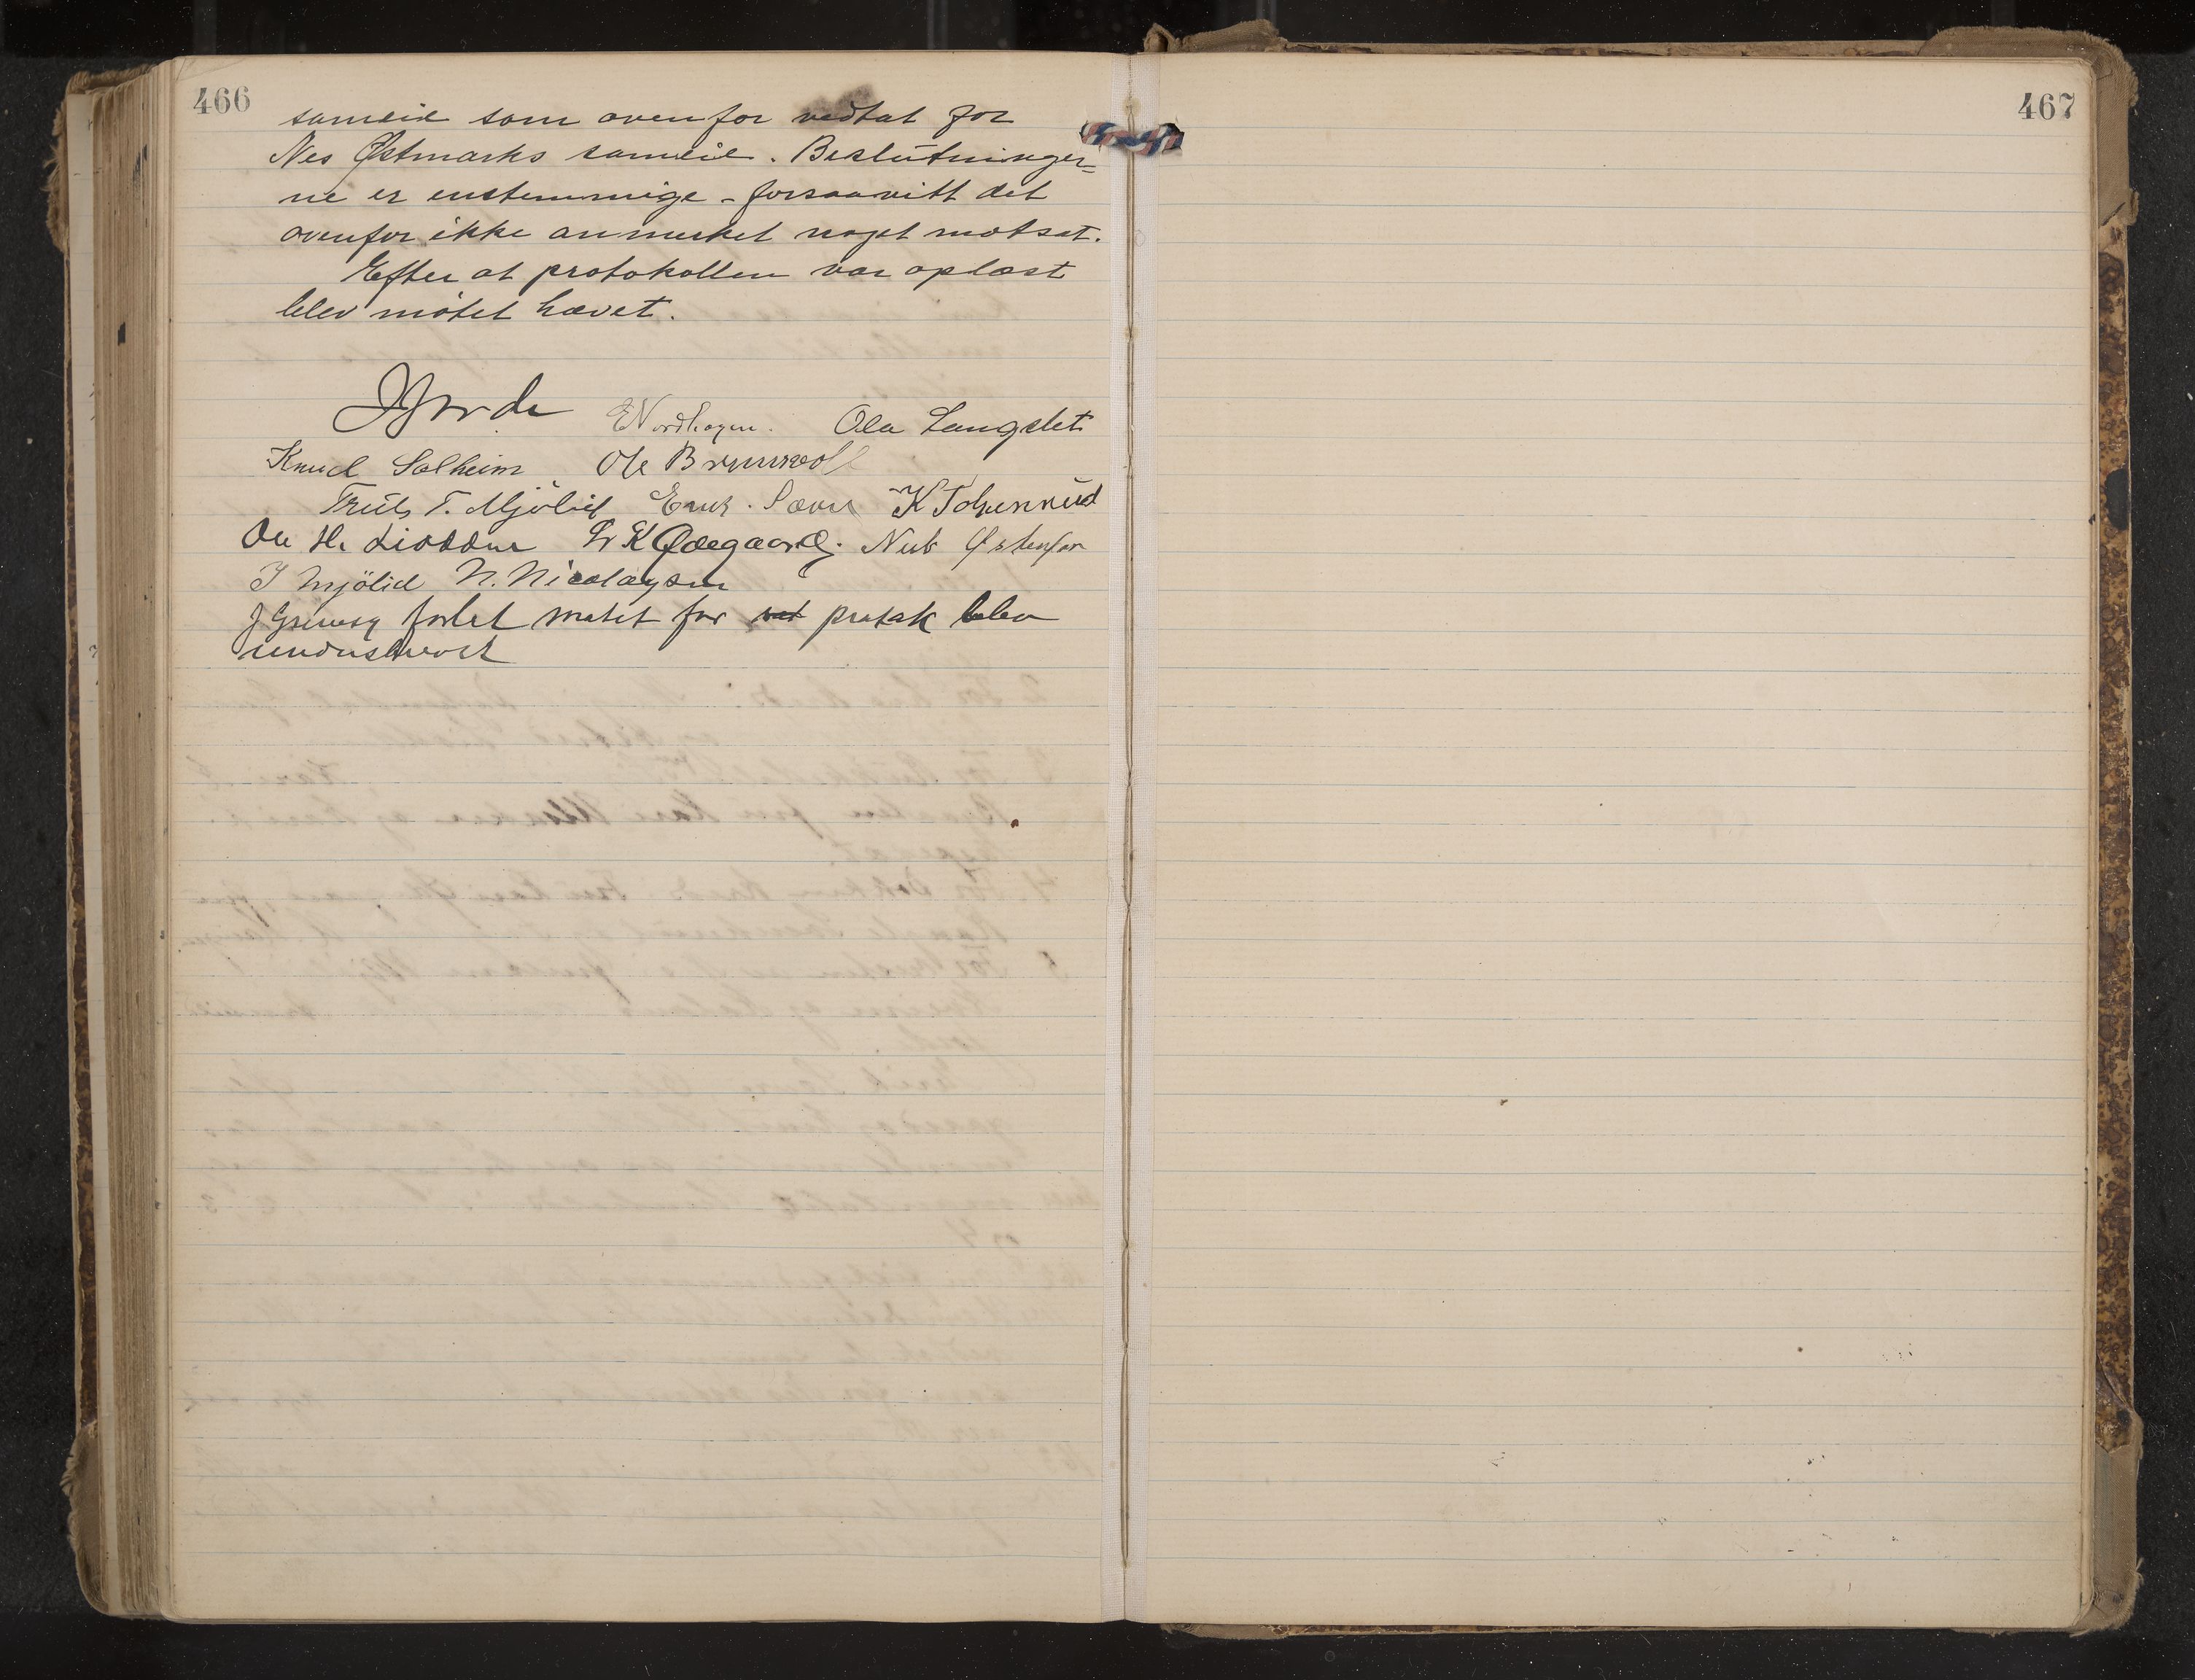 466
sameie som ovenfor vedtat for
Nes Østmarks sameie. Beslutninger=
ne er enstemmige - forsaavitt det
ovenfor ikke anmerket noget motsat.
Efter at protokollen var oplæst
blev møtet hævet.
ENordhagen. Ola Langslet
Knud Solheim Ole Brunvoll
Truls T. Mjölid K Tohenrud
Ole H. Lioddne K Ødegaard.
T Mjölid N. Nicolaysen
forlot møtet før protok blev
underskrevet
467